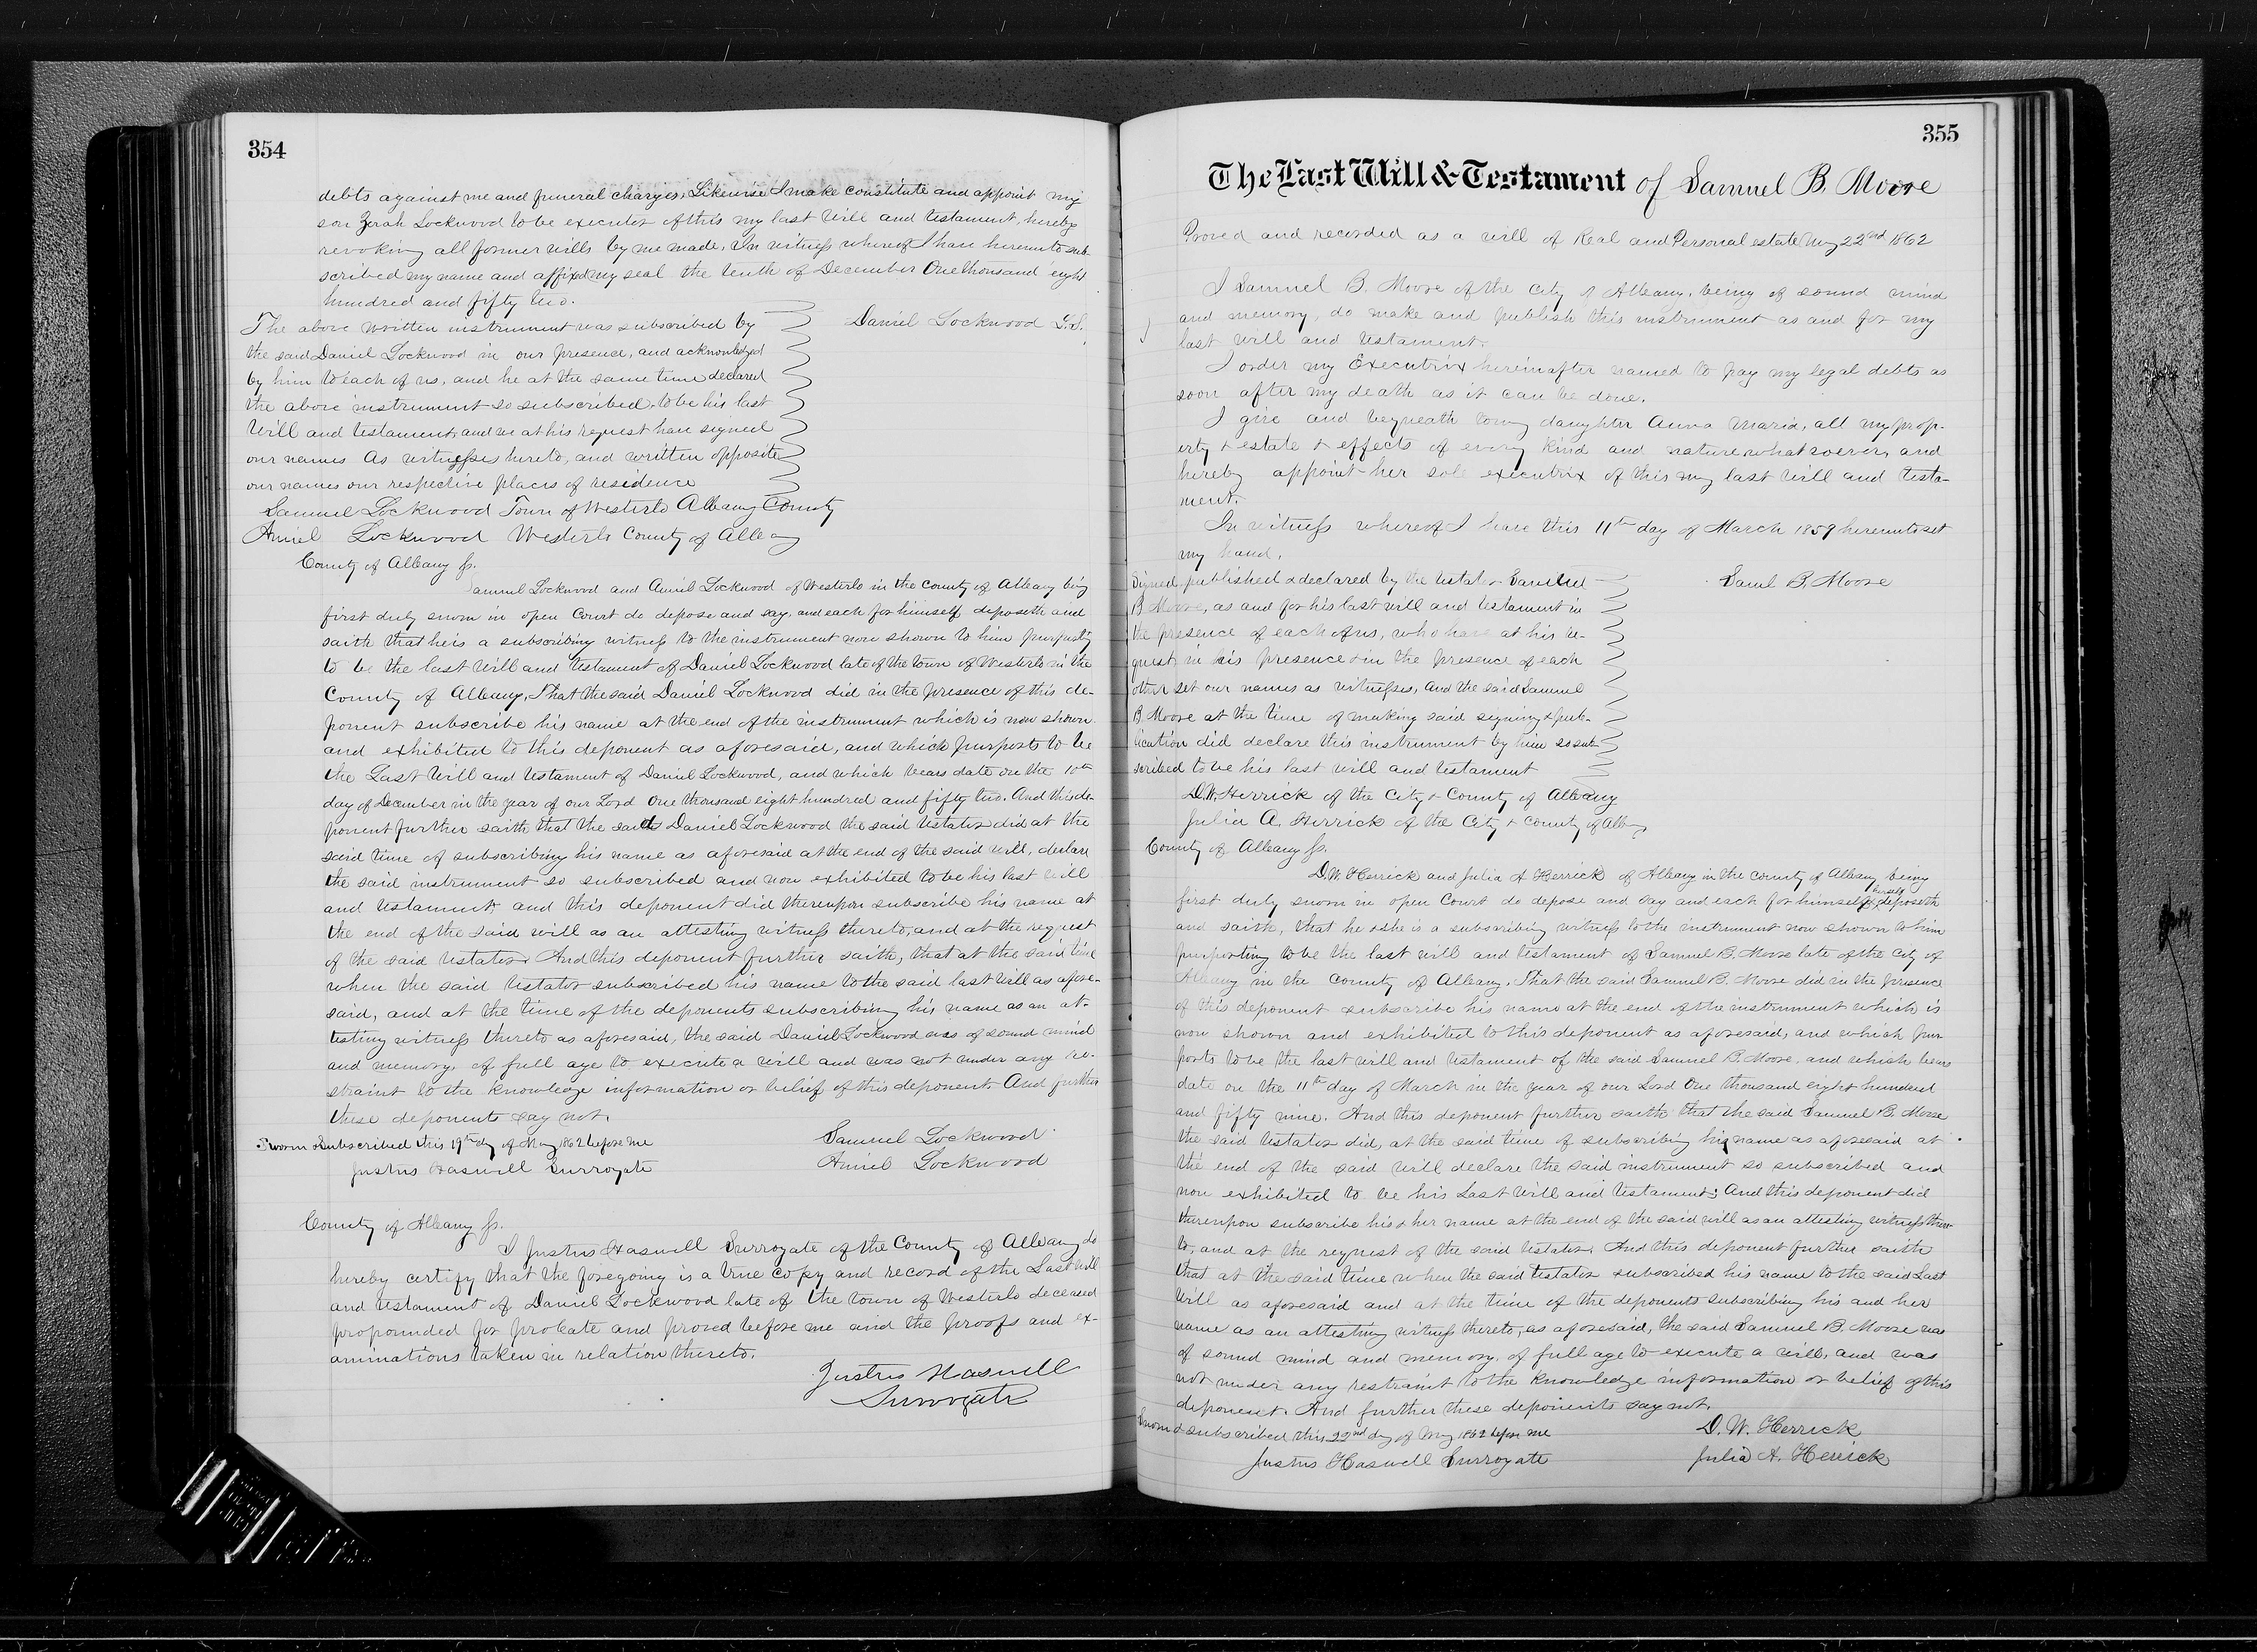 354
debts against me and funeral charges, Likewise I make constitute and appoint my
son Zerah Lockwood to be executor of this my last will and testament, hereby
revoking all former wills by me made, In witness whereof I have hereunto sub-
scribed my name and affixed my seal the tenth of December One thousand eight
hundred and fifty two.
Daniel Lockwood L.S.
The above written instrument was subscribed by
the said Daniel Lockwood in our presence, and acknowledged
by him to each of us, and he at the same time declared
the above instrument so subscribed, to be his last
Will and testament, and we at his request have signed
our names As witnesses hereto, and written opposite
our names our respective places of residence
Samuel Lockwood Town of Westerlo Albany County
Amiel Lockwood Westerlo County of Albany
County of Albany ss.
Samuel Lockwood and Amiel Lockwood of Westerlo in the County of Albany being
first duly sworn in open Court do depose and say, and each for himself deposeth and
saith that he is a subscribing witness to the instrument now shown to him purporting
to be the last Will and testament of Daniel Lockwood late of the town of Westerlo in the
County of Albany, That the said Daniel Lockwood did in the presence of this de-
ponent subscribe his name at the end of the instrument which is now shown
and exhibited to this deponent as aforesaid, and which purports to be
the Last Will and testament of Daniel Lockwood, and which bears date on the 10th
day of December in the year of our Lord One thousand eight hundred and fifty two. And this de-
ponent further saith that the said Daniel Lockwood the said testator did at the
said time of subscribing his name as aforesaid at the end of the said will, declare
the said instrument so subscribed and now exhibited to be his last will
and testament, and this deponent did thereupon subscribe his name at
the end of the said will as an attesting witness thereto, and at the request
of the said testator. And this deponent further saith, that at the said time
when the said testator subscribed his name to the said last will as afore-
said, and at the time of the deponents subscribing his name as an at-
testing witness thereto as aforesaid, the said Daniel Lockwood was of sound mind
and memory, of full age to execute a will and was not under any re-
straint to the knowledge information or belief of this deponent. And further
these deponents say not.
Sworn & Subscribed this 19th day of May 1862 before me
Justus Haswell Surrogate
Samuel Lockwood
Amiel Lockwood
County of Albany ss.
I Justus Haswell Surrogate of the County of Albany do
hereby certify that the foregoing is a true copy and record of the Last will
and testament of Daniel Lockwood late of the town of Westerlo deceased
propounded for probate and proved before me and the proofs and ex-
aminations taken in relation thereto.
Justus Haswell
Surrogate
355
The Last Will & Testament of Samuel B. Moore
Proved and recorded as a will of Real and Personal estate May 22nd 1862
I Samuel B. Moore of the City of Albany, being of sound mind
and memory, do make and publish this instrument as and for my
last will and testament.
I order my Executrix hereinafter named to pay my legal debts as
soon after my death as it can be done.
I give and bequeath to my daughter Anna Maria, all my prop-
erty & estate & effects of every kind and nature whatsoever, and
hereby appoint her sole executrix of this my last will and testa-
ment.
In witness whereof I have this 11th day of March 1859 hereunto set
my hand.
Saml B. Moore
Signed, published & declared by the testator Samuel
B Moore, as and for his last will and testament in
the presence of each of us, who have at his re-
quest, in his presence & in the presence of each
other set our names as witnesses, And the said Samuel
B. Moore at the time of making said signing & pub-
lication did declare this instrument by him so sub-
scribed to be his last will and testament
D.W. Herrick of the City & County of Albany
Julia A. Herrick of the City & County of Albany
County of Albany ss.
D.W. Herrick and Julia A Herrick of Albany in the County of Albany being
first duly sworn in open Court do depose and say and each for himself & herself deposeth
and saith, that he & she is a subscribing witness to the instrument now shown to him
purporting to be the last will and testament of Samuel B. Moore late of the City of
Albany in the County of Albany. That the said Samuel B. Moore did in the presence
of this deponent subscribe his name at the end of the instrument which is
now shown and exhibited to this deponent as aforesaid, and which pur-
ports to be the last will and testament of the said Samuel B. Moore, and which bears
date on the 11th day of March in the year of our Lord One thousand eight hundred
and fifty nine. And this deponent further saith that the said Samuel B. Moore
the said testator did, at the said time of subscribing his name as aforesaid at
the end of the said will declare the said instrument so subscribed and
now exhibited to be his Last will and testament; And this deponent did
thereupon subscribe his & her name at the end of the said will as an attesting witness there-
to, and at the request of the said testator. And this deponent further saith
that at the said time when the said testator subscribed his name to the said Last
Will as aforesaid and at the time of the deponents subscribing his and her
name as an attesting witness thereto, as aforesaid, the said Samuel B. Moore was
of sound mind and memory, of full age to execute a will, and was
not under any restraint to the knowledge information or belief of this
deponent. And further these deponents say not.
Sworn & subscribed this 22nd day of May 1862 before me
Justus Haswell Surrogate
D. W. Herrick
Julia A. Herrick